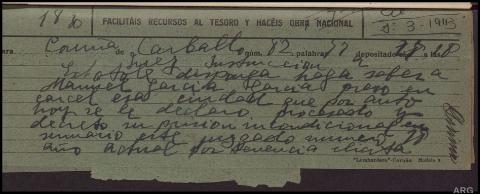 18/10 FACILITÁIS RECURSOS AL TESORO Y HACÉIS OBRA NACIONAL
3-1943
para Coruña de Carballo núm. 82 palabras 57 depositado 18
Juez Instruccion a
disponga haga saber a
Manuel Garcia Garcia preso en
carcel esa ciudad que por auto
hoy se le declaro procesado y
decreto su prision incondicional en
sumario este juzgado numero 78
año actual por tenencia ilicita
"Lombardero"-Coruña Modelo
ARG